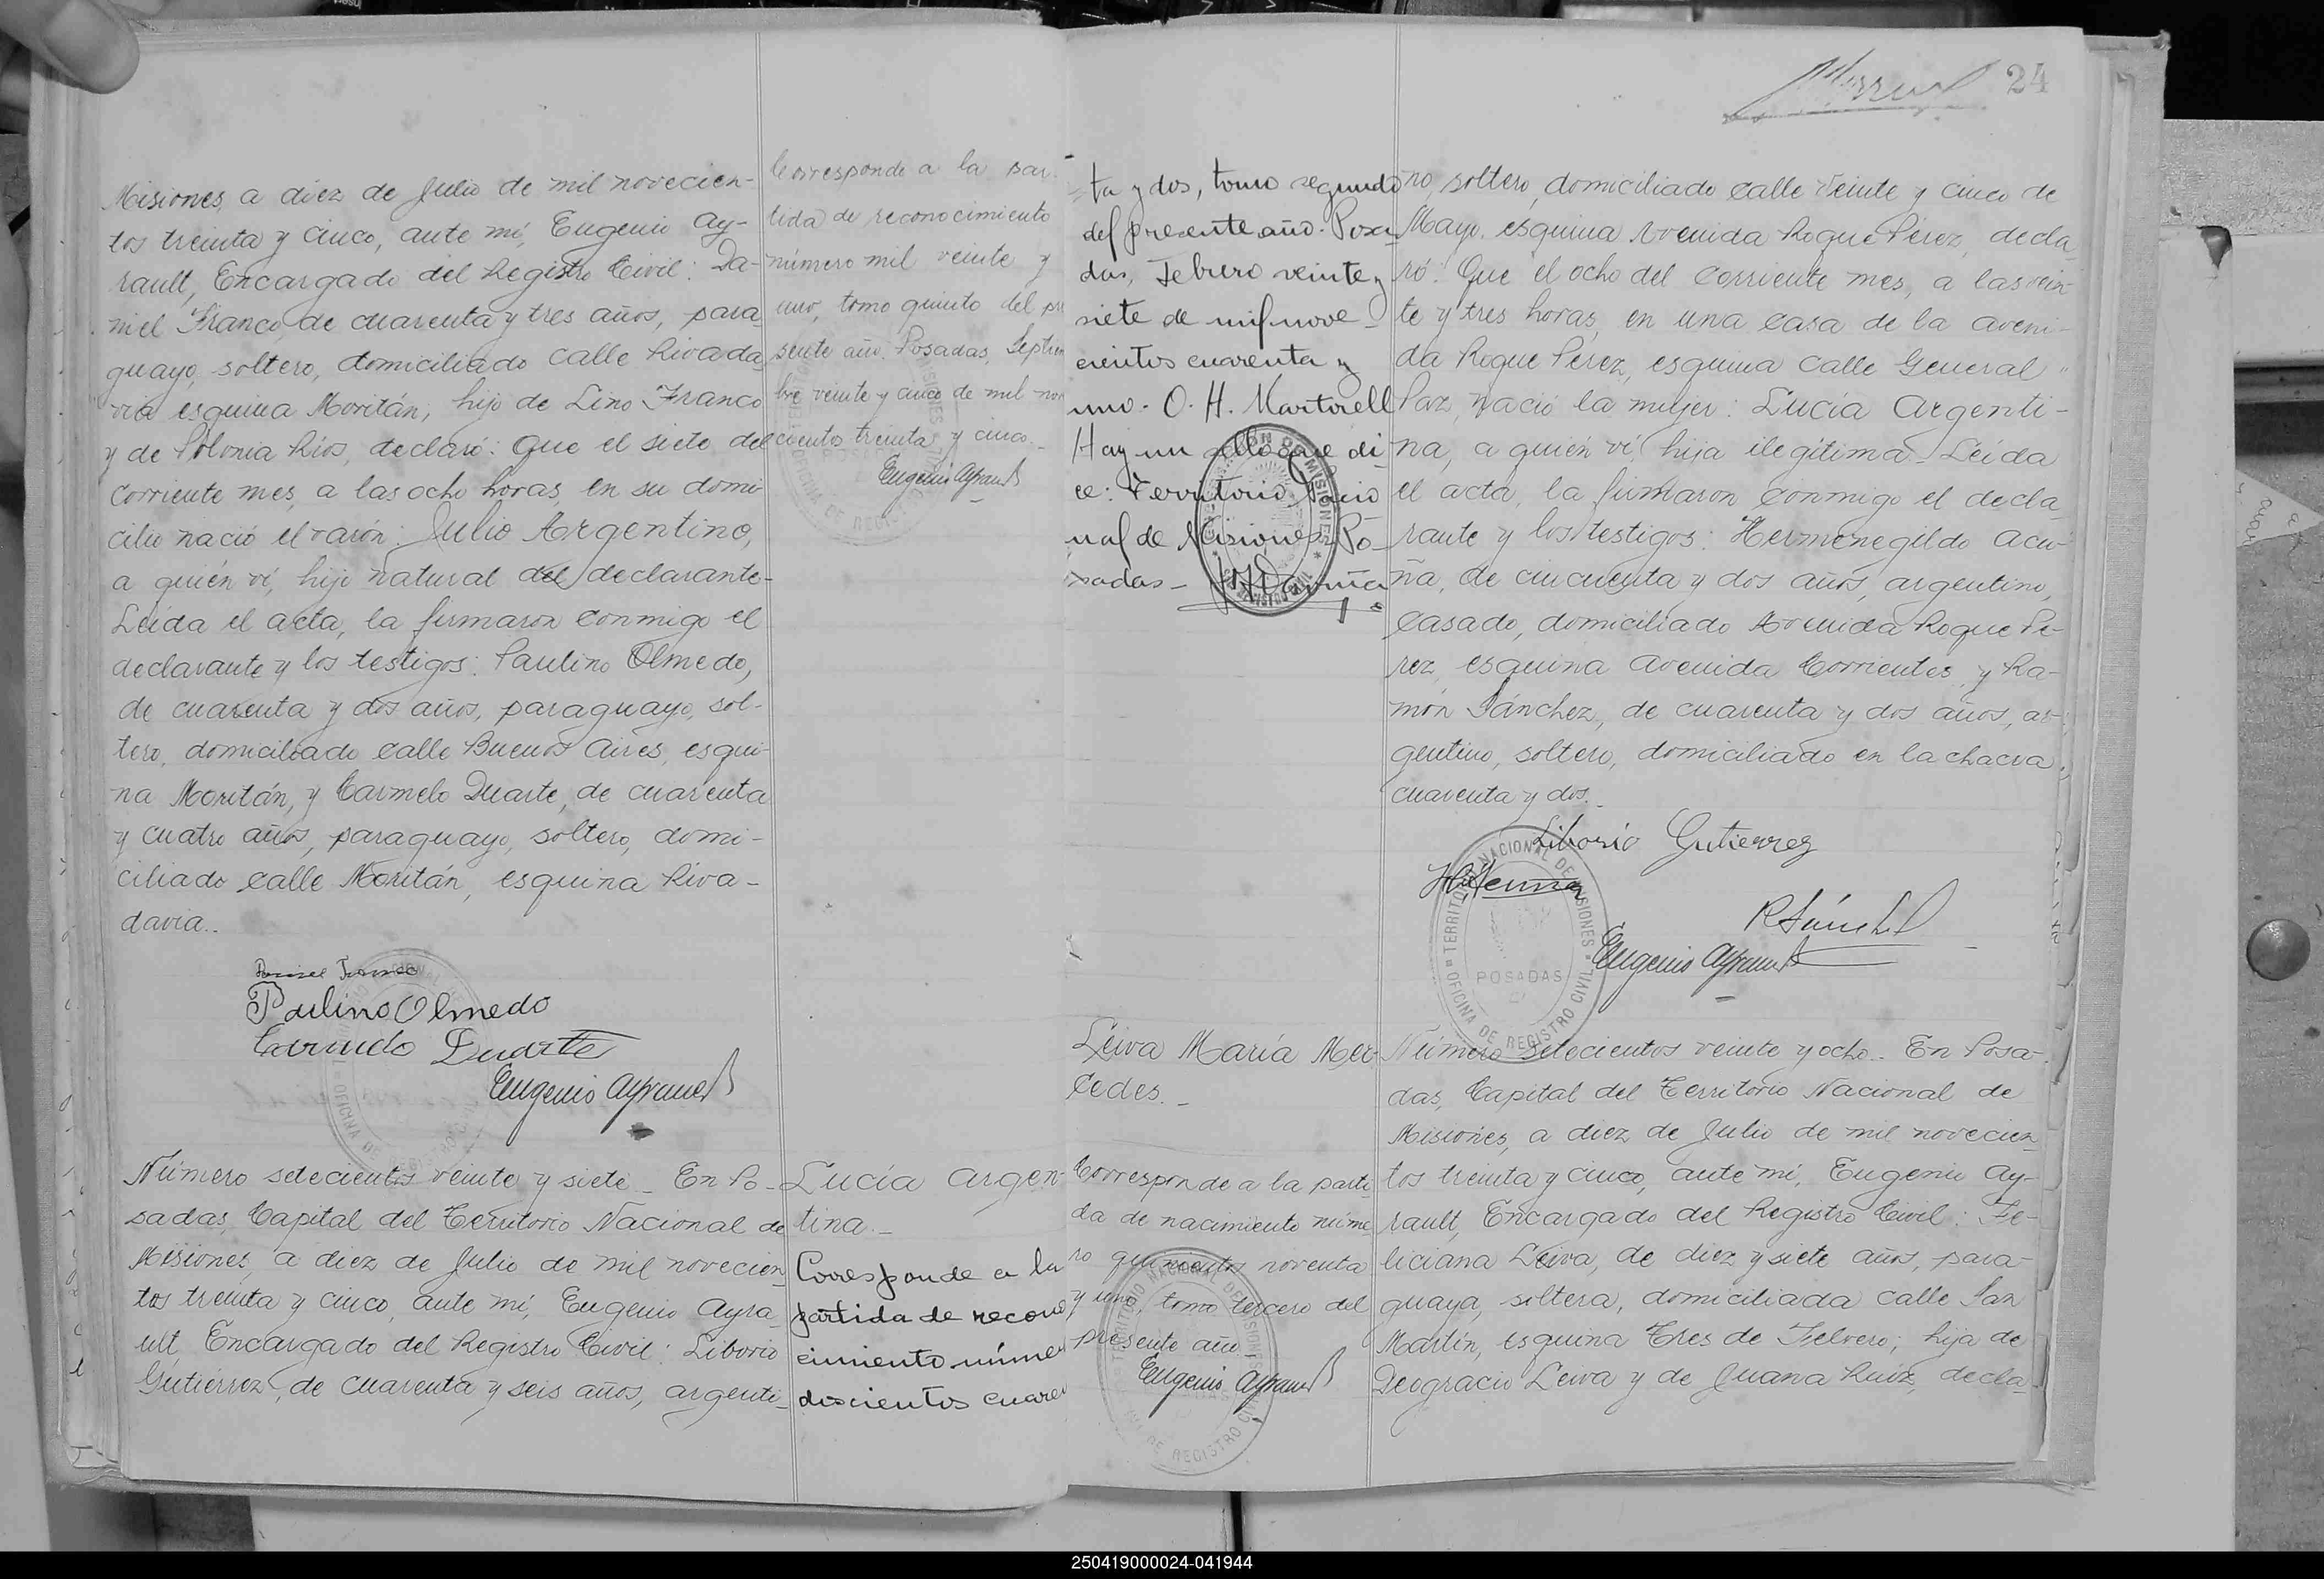 Misiones, a diez de Julio de mil novecien-
tos treinta y cinco, ante mí, Eugenio Ay-
rault, Encargado del Registro Civil: Da-
niel Franco, de cuarenta y tres años, para
guayo, soltero, domiciliado calle Rivada
via esquina Moritán, hijo de Lino Franco
y de Polonia Ríos, declaró: Que el siete del
corriente mes, a las ocho horas, en su domi
cilio nació el varón: Julio Argentino,
a quién ví, hijo natural del declarante-
Leída el acta, la firmaron conmigo el
declarante y los testigos: Paulino Olmedo,
de cuarenta y dos años, paraguayo, sol-
tero, domiciliado calle Buenos Aires, esqui-
na Moritán, y Carmelo Duarte, de cuarenta
y cuatro años, paraguayo, soltero, domi-
ciliado calle Moritán, esquina Riva-
davia..
Daniel Franco
Paulino Olmedo
Carmelo Duarte
Eugenio Ayrault
Número setecientos veinte y siete_ En Po-
sadas, Capital del Territorio Nacional de
Misiones, a diez de Julio de mil novecien
tos treinta y cinco, ante mí, Eugenio Ayra
ult, Encargado del Registro Civil: Liborio
Gutierrez, de cuarenta y seis años, argenti-
Corresponde a la par-
tida de reconocimiento
número mil veinte y
uno, tomo quinto del pre
sente año. Posadas, Septiem
bre veinte y cinco de mil nove
cientos treinta y cinco.
Eugenio Ayrault
Lucía Argen-
tina._
Corresponde a la
partida de recono
cimiento número
doscientos cuaren
ta y dos, tomo segundo
del presente año. Posa
das, Febrero veinte y
siete de mil nove-
cientos cuarenta y
uno. O. H. Martorell
Hay un sello que di-
ce: Territorio Nacio
nal de Misiones Po-
sadas-
24
no, soltero, domiciliado calle Veinte y cinco de
Mayo, esquina Avenida Roque Pérez, decla
ró: Que el ocho del corriente mes, a las vein
te y tres horas, en una casa de la aveni-
da Roque Pérez, esquina calle General
Paz, nació la mujer: Lucía Argenti-
na, a quién ví, hija ilegítima_ Leída
el acta, la firmaron conmigo el decla
rante y los testigos: Hermenegildo Acu
ña, de cincuenta y dos años, argentino,
casado, domiciliado Avenida Roque Pé-
rez, esquina avenida Corrientes, y Ra-
món Sánchez, de cuarenta y dos años, ar-
gentino, soltero, domiciliado en la chacra
cuarenta y dos._
Liborio Gutierrez
R Sánchez
Eugenio Ayrault
TERRITORIO NACIONAL DE MISIONES
POSADAS
OFICINA DE REGISTRO CIVIL
Leiva María Mer-
cedes._
Corresponde a la parti
da de nacimiento núme
ro quinientos noventa
y uno, tomo tercero del
presente año.
Eugenio Ayrault
Número setecientos veinte y ocho_ En Posa-
das, Capital del Territorio Nacional de
Misiones, a diez de Julio de mil novecien
tos treinta y cinco, ante mí, Eugenio Ay-
rault, Encargado del Registro Civil: Fe-
liciana Leiva, de diez y siete años, para-
guaya, soltera, domiciliada calle San
Martín, esquina Tres de Febrero; hija de
Deogracio Leiva y de Juana Ruíz, decla-
250419000024-041944